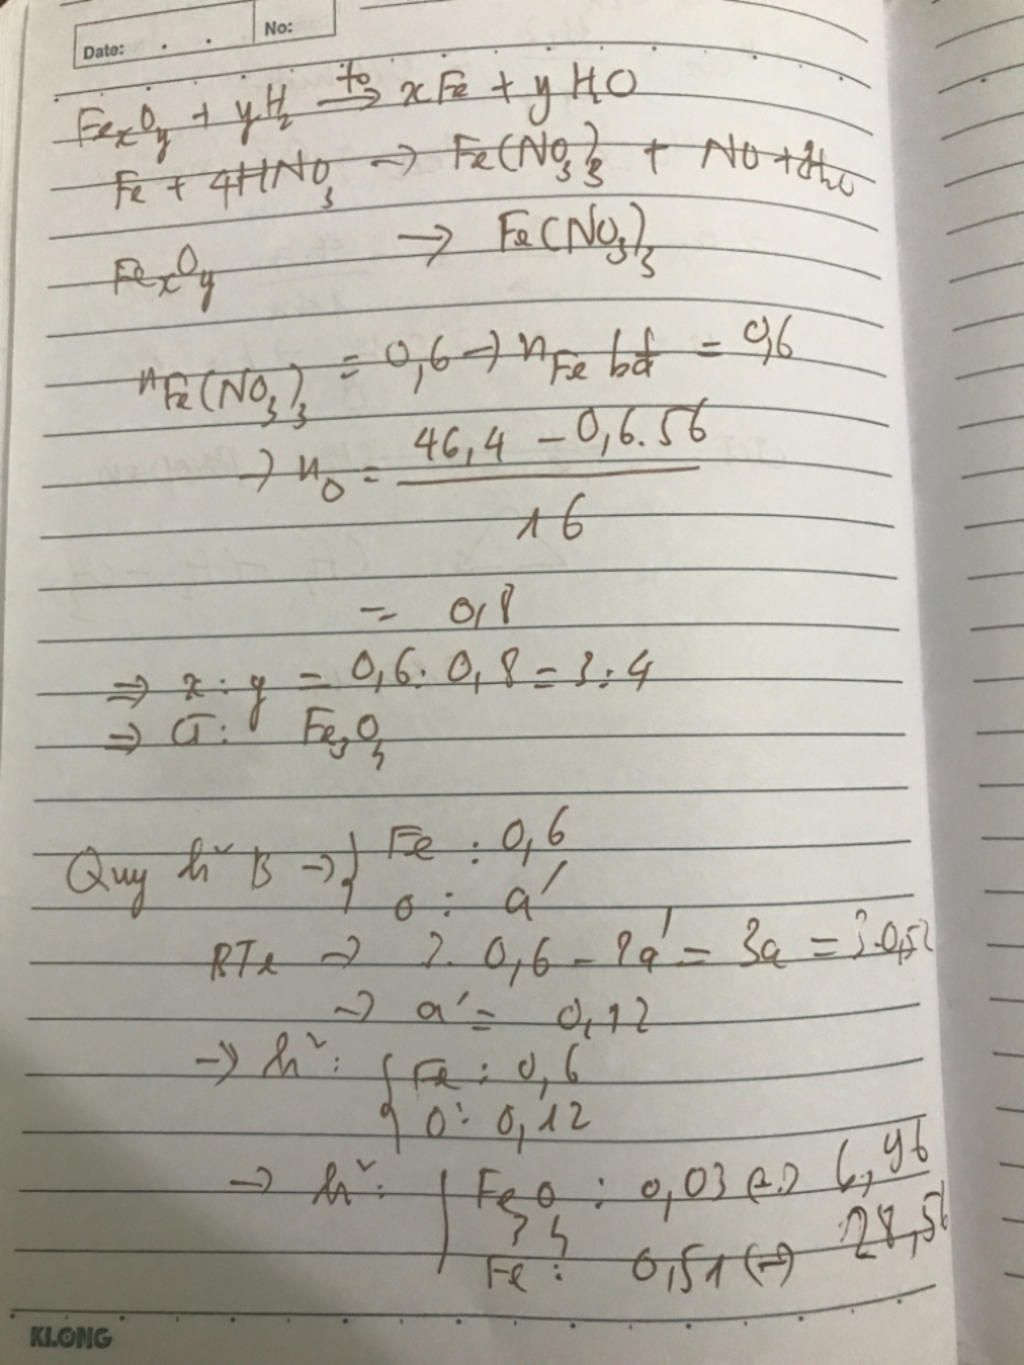 Date: No:
FeₓOy + yH₂ →(t°) xFe + yH₂O
Fe + 4HNO₃ → Fe(NO₃)₃ + NO + 2H₂O
FeₓOy → Fe(NO₃)₃
nFe(NO₃)₃ = 0,6 → nFe bđ = 0,6
→ nO = (46,4 - 0,6.56) / 16
= 0,8
⇒ x : y = 0,6 : 0,8 = 3 : 4
⇒ CT: Fe₃O₄
Quy h² B → { Fe : 0,6
O : a'
BTe → 3. 0,6 - 2a' = 3a = 3.0,52
→ a' = 0,12
→ h²: { Fe : 0,6
O : 0,12
→ h²: | Fe₃O₄ : 0,03 (→) 6,96
Fe : 0,51 (→) 28,56
KLONG